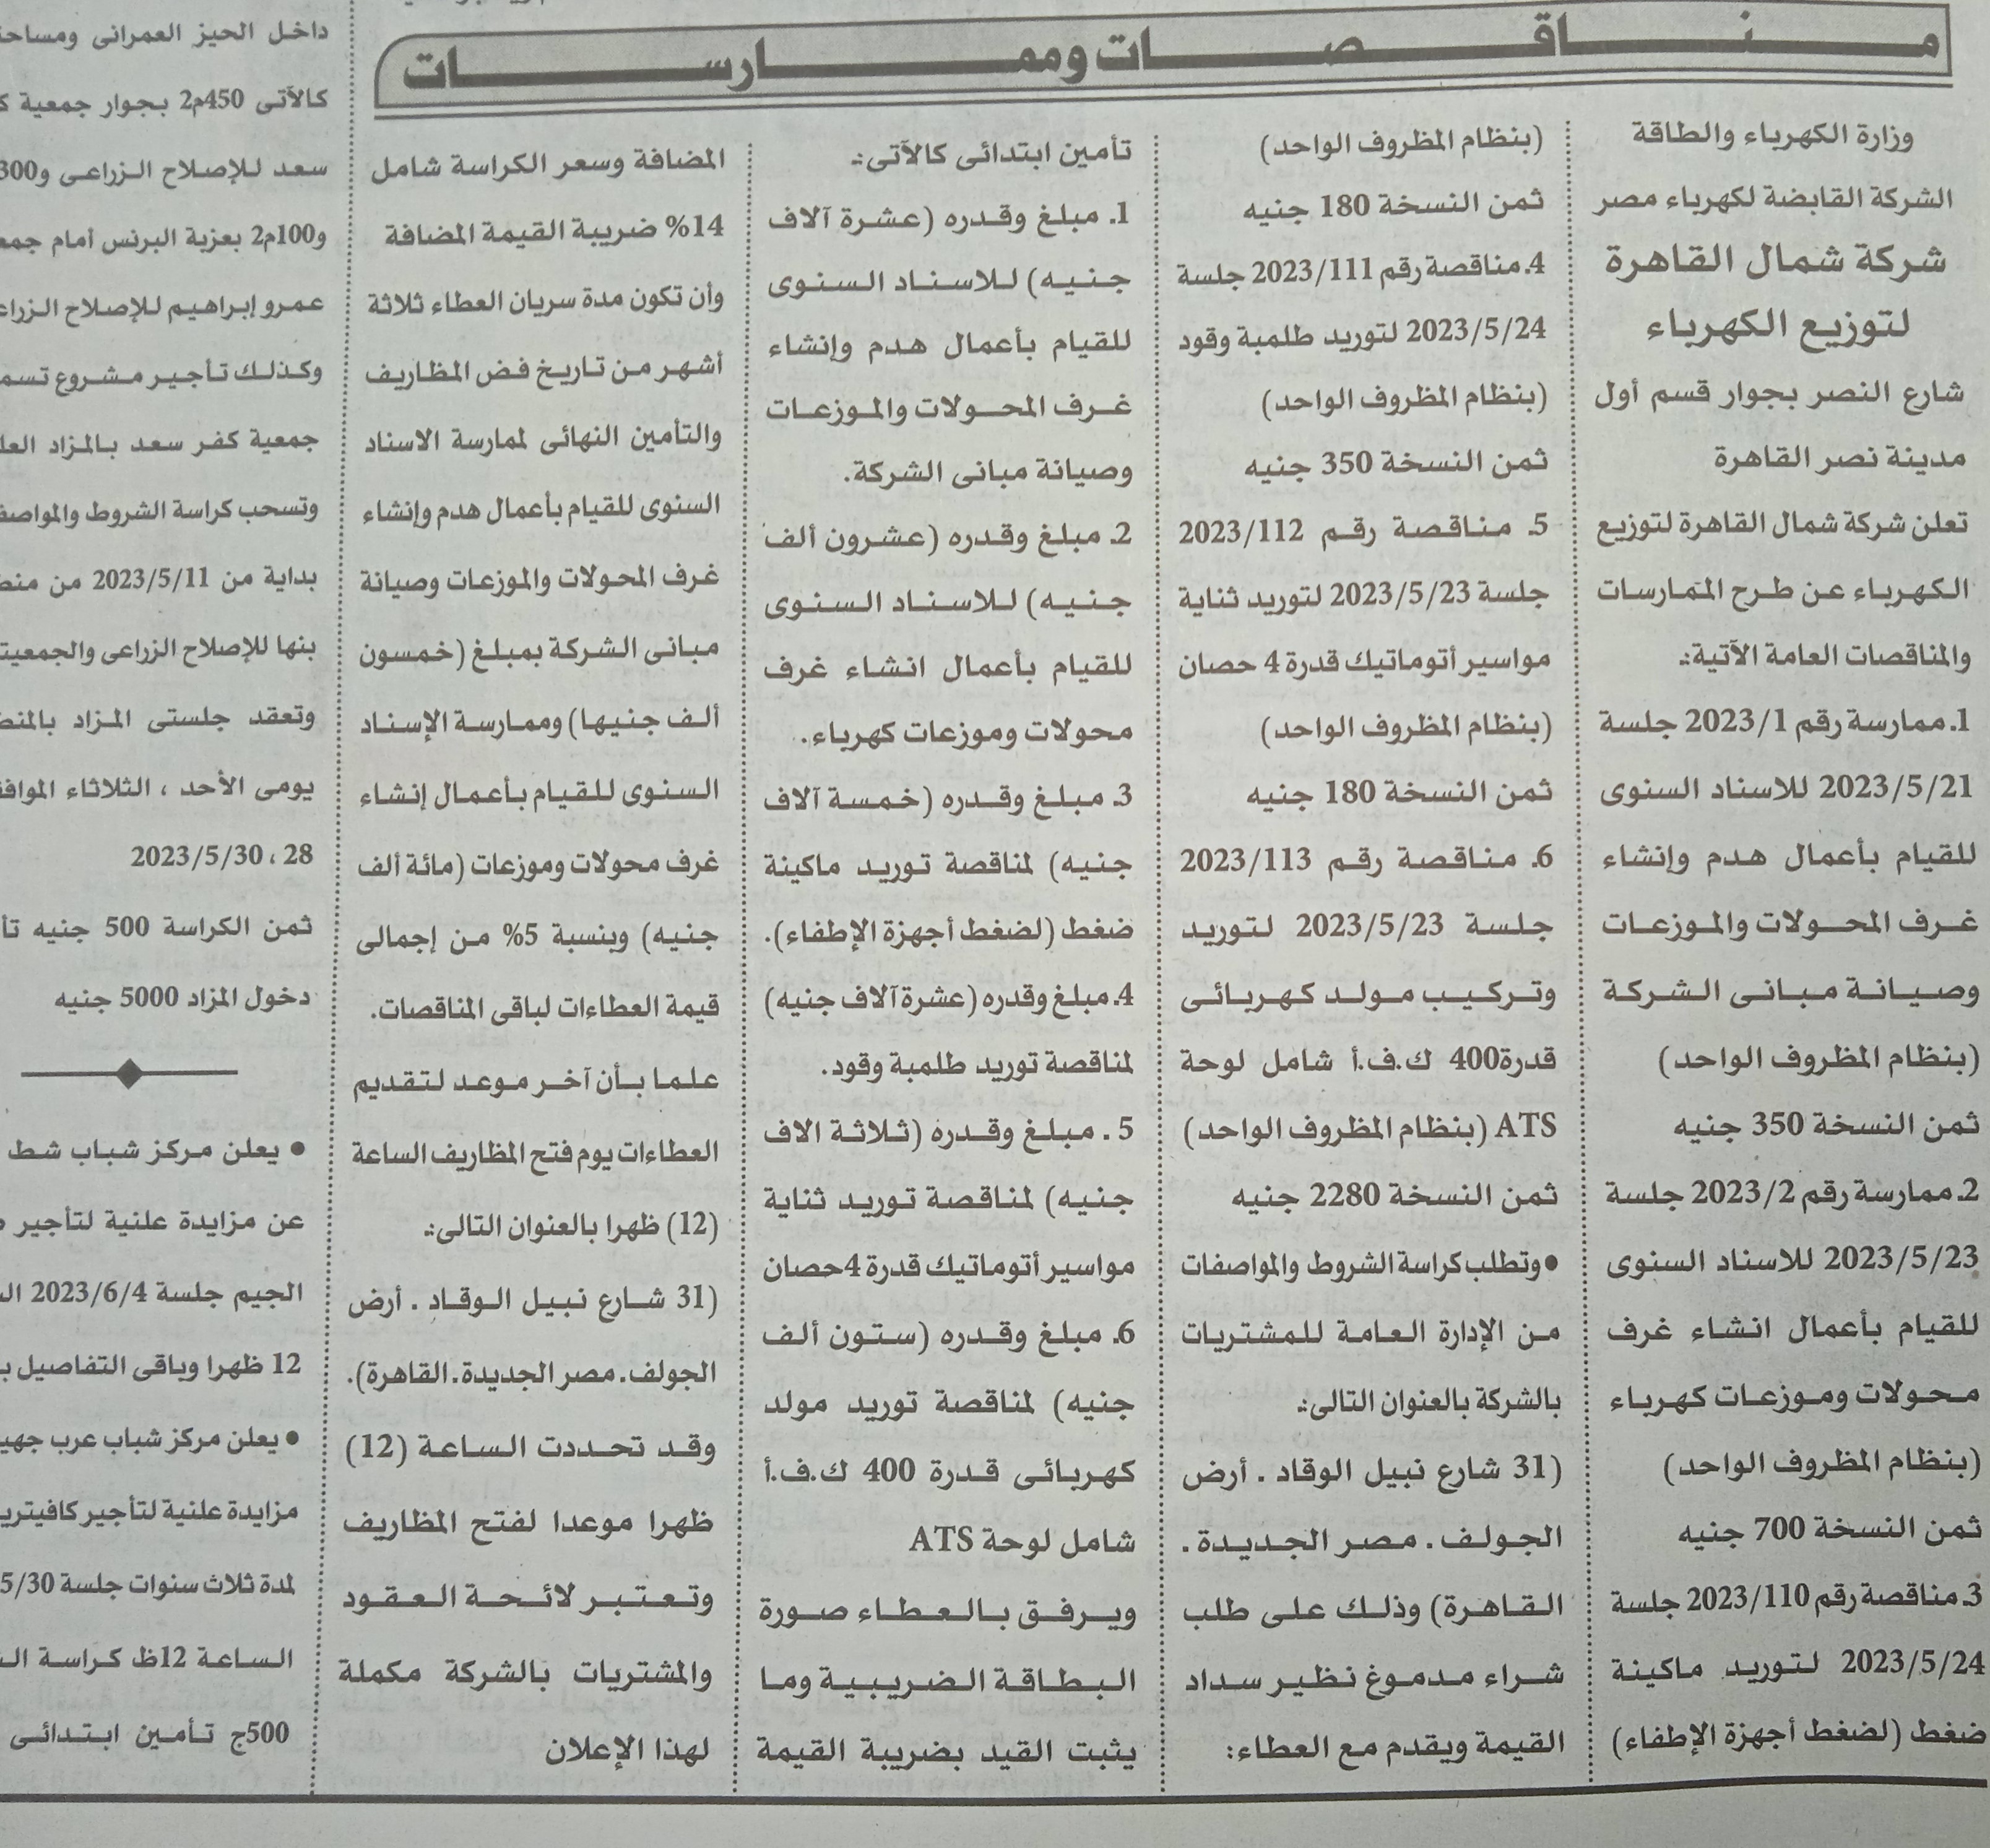 منـاقـصـات وممـارسـات
وزارة الكهرباء والطاقة
الشركة القابضة لكهرباء مصر
شركة شمال القاهرة
لتوزيع الكهرباء
شارع النصر بجوار قسم أول
مدينة نصر القاهرة
تعلن شركة شمال القاهرة لتوزيع
الكهرباء عن طرح الممارسات
والمناقصات العامة الآتية:ـ
1ـ ممارسة رقم 2023/1 جلسة
2023/5/21 للاسناد السنوى
للقيام بأعمال هدم وإنشاء
غرف المحولات والموزعات
وصيانة مبانى الشركة
(بنظام المظروف الواحد)
ثمن النسخة 350 جنيه
2ـ ممارسة رقم 2023/2 جلسة
2023/5/23 للاسناد السنوى
للقيام بأعمال انشاء غرف
محولات وموزعات كهرباء
(بنظام المظروف الواحد)
ثمن النسخة 700 جنيه
3ـ مناقصة رقم 2023/110 جلسة
2023/5/24 لتوريد ماكينة
ضغط (لضغط أجهزة الإطفاء)
(بنظام المظروف الواحد)
ثمن النسخة 180 جنيه
4ـ مناقصة رقم 2023/111 جلسة
2023/5/24 لتوريد طلمبة وقود
(بنظام المظروف الواحد)
ثمن النسخة 350 جنيه
5ـ مناقصة رقم 2023/112
جلسة 2023/5/23 لتوريد ثناية
مواسير أتوماتيك قدرة 4 حصان
(بنظام المظروف الواحد)
ثمن النسخة 180 جنيه
6ـ مناقصة رقم 2023/113
جلسة 2023/5/23 لتوريد
وتركيب مولد كهربائى
قدرة400 ك.ف.أ شامل لوحة
ATS (بنظام المظروف الواحد)
ثمن النسخة 2280 جنيه
● وتطلب كراسة الشروط والمواصفات
من الإدارة العامة للمشتريات
بالشركة بالعنوان التالى:ـ
(31 شارع نبيل الوقاد . أرض
الجولف . مصر الجديدة .
القاهرة) وذلك على طلب
شراء مدموغ نظير سداد
القيمة ويقدم مع العطاء:
تأمين ابتدائى كالآتى:ـ
1ـ مبلغ وقدره (عشرة آلاف
جنيه) للاسناد السنوى
للقيام بأعمال هدم وإنشاء
غرف المحولات والموزعات
وصيانة مبانى الشركة.
2ـ مبلغ وقدره (عشرون ألف
جنيه) للاسناد السنوى
للقيام بأعمال انشاء غرف
محولات وموزعات كهرباء.
3ـ مبلغ وقدره (خمسة آلاف
جنيه) لمناقصة توريد ماكينة
ضغط (لضغط أجهزة الإطفاء).
4ـ مبلغ وقدره (عشرة آلاف جنيه)
لمناقصة توريد طلمبة وقود.
5 . مبلغ وقدره (ثلاثة الاف
جنيه) لمناقصة توريد ثناية
مواسير أتوماتيك قدرة 4حصان
6ـ مبلغ وقدره (ستون ألف
جنيه) لمناقصة توريد مولد
كهربائى قدرة 400 ك.ف.أ
شامل لوحة ATS
ويرفق بالعطاء صورة
البطاقة الضريبية وما
يثبت القيد بضريبة القيمة
المضافة وسعر الكراسة شامل
14% ضريبة القيمة المضافة
وأن تكون مدة سريان العطاء ثلاثة
أشهر من تاريخ فض المظاريف
والتأمين النهائى لممارسة الاسناد
السنوى للقيام بأعمال هدم وإنشاء
غرف المحولات والموزعات وصيانة
مبانى الشركة بمبلغ (خمسون
ألف جنيها) وممارسة الإسناد
السنوى للقيام بأعمال إنشاء
غرف محولات وموزعات (مائة ألف
جنيه) وبنسبة 5% من إجمالى
قيمة العطاءات لباقى المناقصات.
علما بأن آخر موعد لتقديم
العطاءات يوم فتح المظاريف الساعة
(12) ظهرا بالعنوان التالى:ـ
(31 شارع نبيل الوقاد . أرض
الجولف. مصر الجديدة. القاهرة).
وقد تحددت الساعة (12)
ظهرا موعدا لفتح المظاريف
وتعتبر لائحة العقود
والمشتريات بالشركة مكملة
لهذا الإعلان
داخل الحيز العمرانى
كالآتى 450م2 بجوار جمعية
سعد للإصلاح الزراعى
و100م2 بعزبة البرنس أمام
عمرو إبراهيم للإصلاح
وكذلك تأجير مشروع
جمعية كفر سعد بالمزاد
وتسحب كراسة الشروط
بداية من 2023/5/11 من
بنها للإصلاح الزراعى
وتعقد جلستى المزاد
يومى الأحد ، الثلاثاء
28 ، 2023/5/30
ثمن الكراسة 500 جنيه
دخول المزاد 5000 جنيه
● يعلن مركز شباب شط
عن مزايدة علنية لتأجير
الجيم جلسة 2023/6/4
12 ظهرا وباقى التفاصيل
● يعلن مركز شباب عرب
مزايدة علنية لتأجير
لمدة ثلاث سنوات جلسة 5/30
الساعة 12ظ كراسة
500ج تأمين ابتدائى